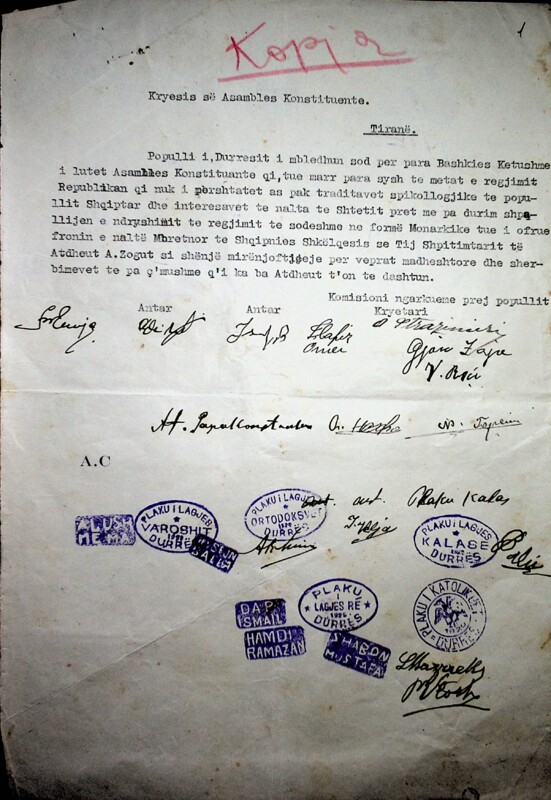 1
Kopja
Kryesis së Asambles Konstituente.
Tiranë.
Populli i,Durresit i mbledhun sod per para Bashkies Ketushme
i lutet Asamles Konstituante qi,tue marr para sysh te metat e regjimit
Republikan qi nuk i përshtatet as pak traditavet spikollogjike te popu-
llit Shqiptar dhe interesavet te nalta te Shtetit pret me pa durim shpa-
llijen e ndryshimit te regjimit te sodeshme ne formë Monarkike tue i ofrue
fronin e naltë Mbretnor te Shqipnies Shkëlqesis se Tij Shpitimtarit të
Atdheut A.Zogut si shënjë mirënjoftjeje per veprat madheshtore dhe sher-
bimevet te pa ç'mushme q'i ka ba Atdheut t'on te dashtun.
Komisioni ngarkueme prej popullit
Antar Antar Kryetari
Hafiz
Omer
Gjon
At. Papakonstantin
A.C
Plaku Kalas
PLAKU I LAGJES
VAROSHIT
DURRËS
PLAKU I LAGJES
ORTODOKSVET
DURRËS
PLAKU I LAGJES
KALASE
DURRËS
PLAKU
I
LAGJES RË
DURRËS
PLAKU I KATOLIKVET
DURRËS
ISMAIL
HAMDI
RAMAZAN
SHABON
MUSTAFA